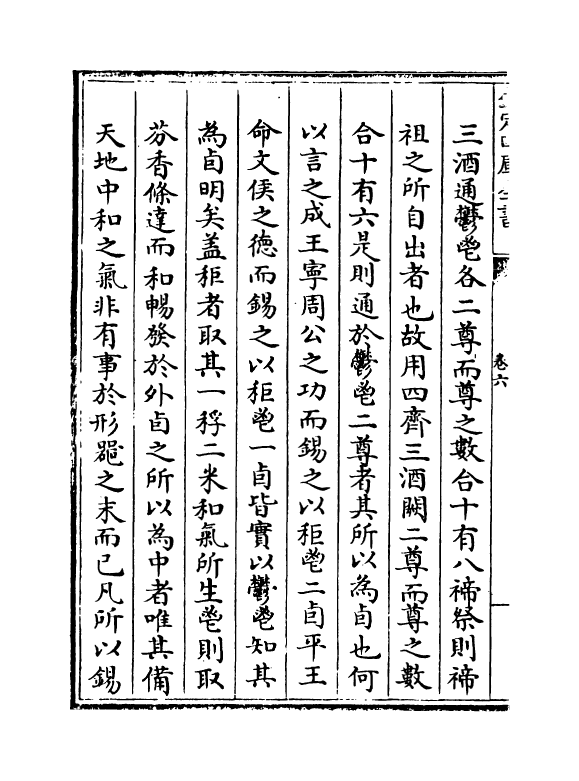 三酒通鬱鬯各二尊而尊之數合十有八禘祭則禘
祖之所自出者也故用四齊三酒闕二尊而尊之數
合十有六是則通於鬱鬯二尊者其所以為卣也何
以言之成王寧周公之功而錫之以秬鬯二卣平王
命文侯之徳而錫之以秬鬯一卣皆實以鬱鬯知其
為卣明矣盖秬者取其一稃二米和氣所生鬯則取
芬香條達而和暢發於外卣之所以為中者唯其備
天地中和之氣非有事於形器之末而已凡所以錫
卷六